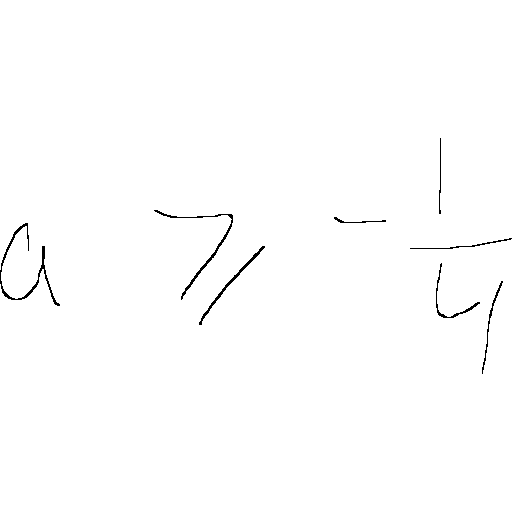 a ⩾ -1/4